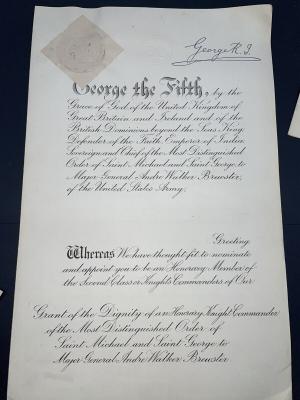 George R. I.
George the Fifth, by the
Grace of God, of the United Kingdom of
Great Britain and Ireland and of the
British Dominions beyond the Seas King,
Defender of the Faith, Emperor of India,
Sovereign and Chief of the Most Distinguished
Order of Saint Michael and Saint George, to
Major-General Andre Walker Brewster,
of the United States Army,
Greeting
Whereas We have thought fit to nominate
and appoint you to be an Honorary Member of
the Second Class or Knights Commanders of Our
Grant of the Dignity of an Honorary Knight Commander
of the Most Distinguished Order of
Saint Michael and Saint George to
Major General Andre Walker Brewster